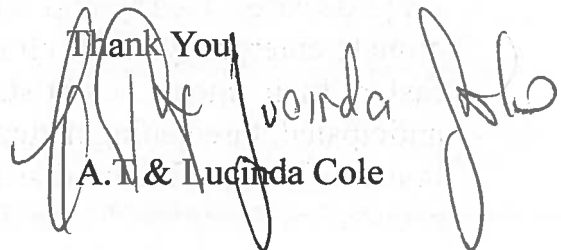 Thank You,
Lucinda
A.T. & Lucinda Cole